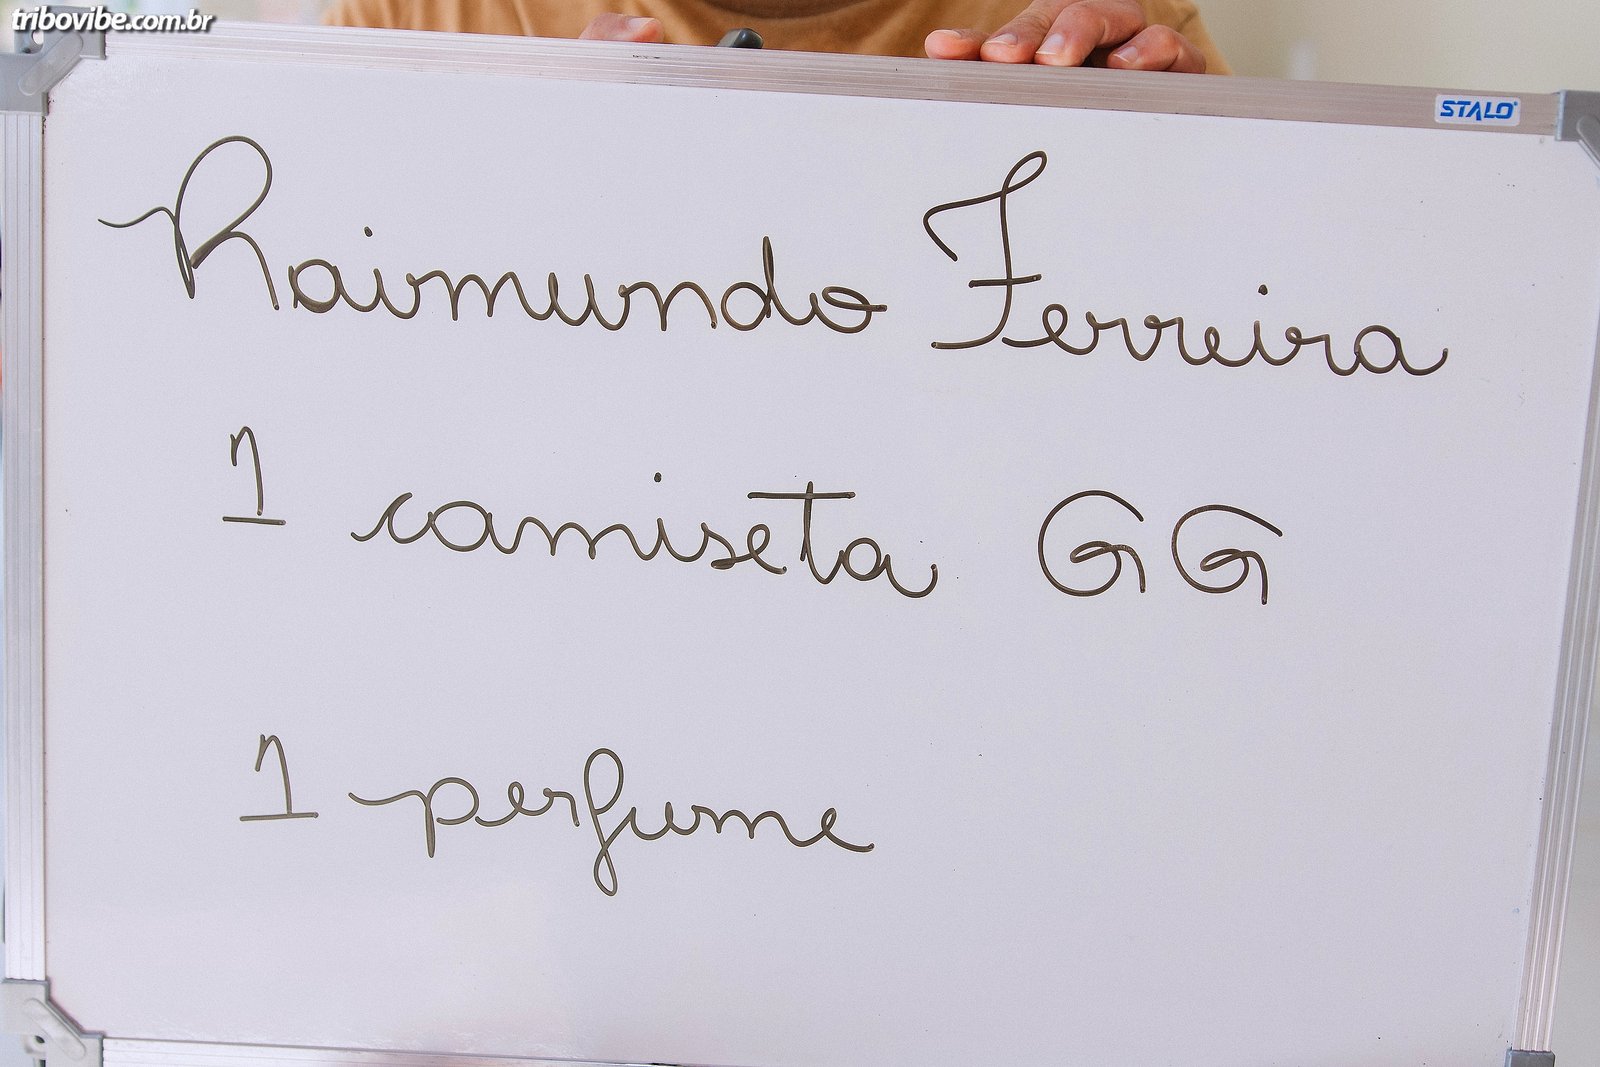 tribovibe.com.br
STALO
Raimundo Ferreira
1 camiseta GG
1 perfume